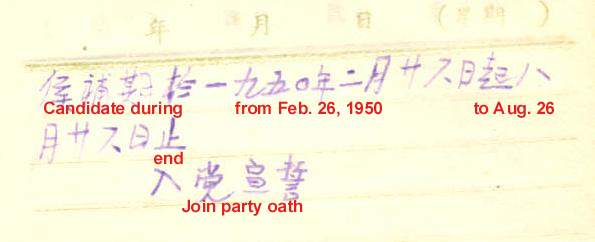 年 月 日 (星期 )
候補期於一九五〇年二月廿六日起八
Candidate during from Feb. 26, 1950 to Aug. 26
月廿六日止
end
入党宣誓
Join party oath